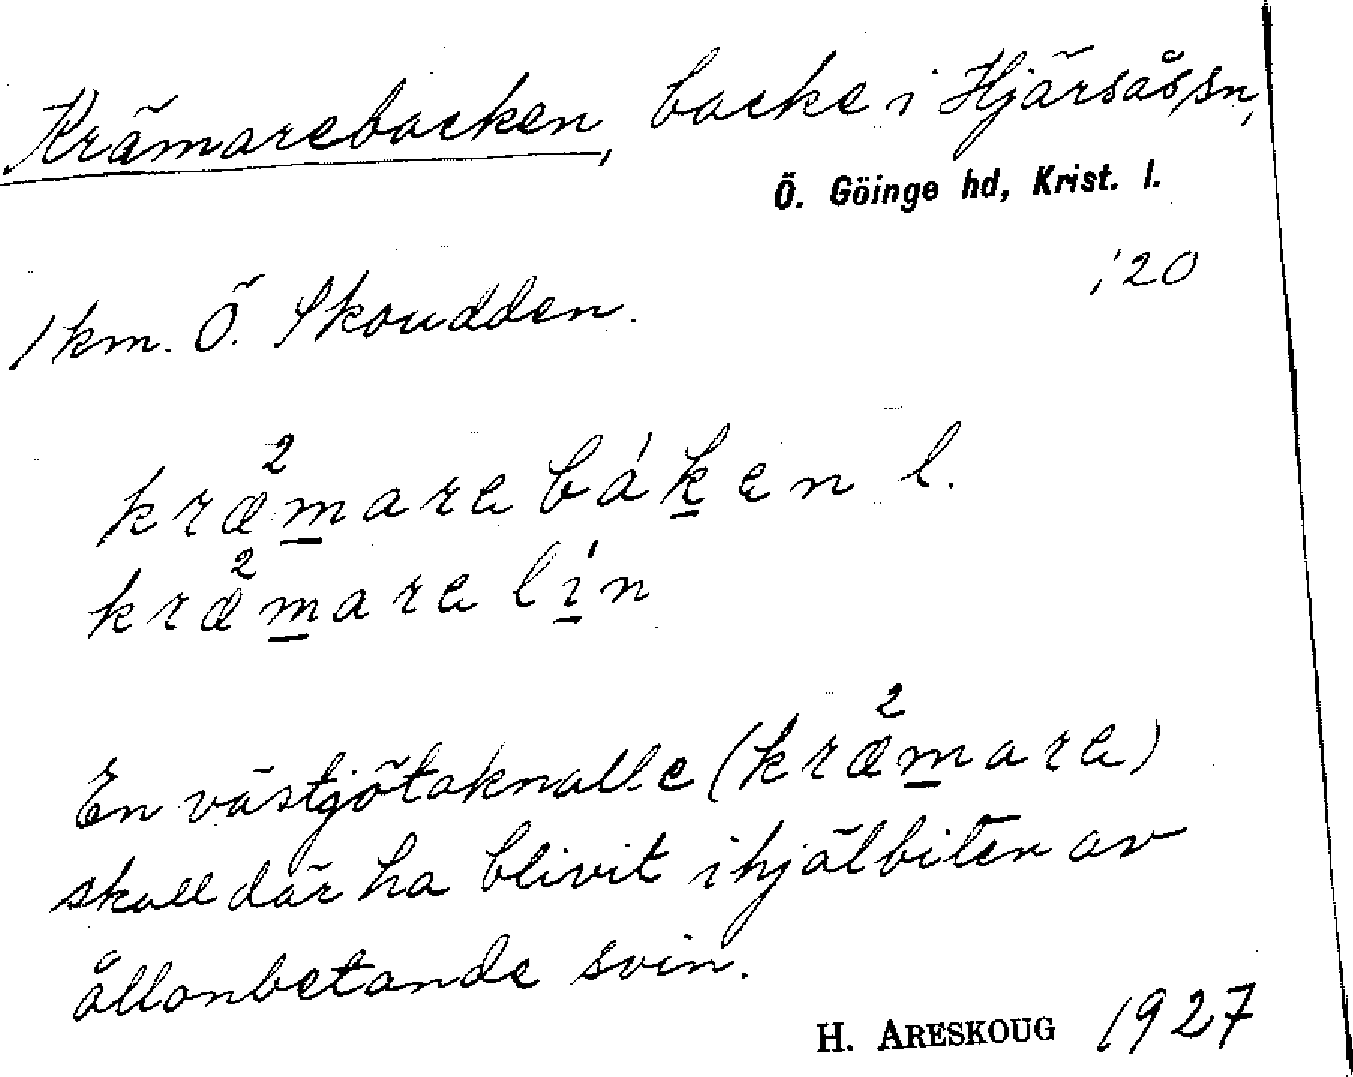 Krämarebacken, backe i Hjärsås sn,
Ö. Göinge hd, Krist. l.
'20
1 km. Ö. Skoudden.
kræ²m̲are bák̲en l.
kræ²m̲are lí̲n
En västgötaknalle (kræ²m̲are)
skall där ha blivit ihjälbiten av
ållonbetande svin.
H. ARESKOUG 1927